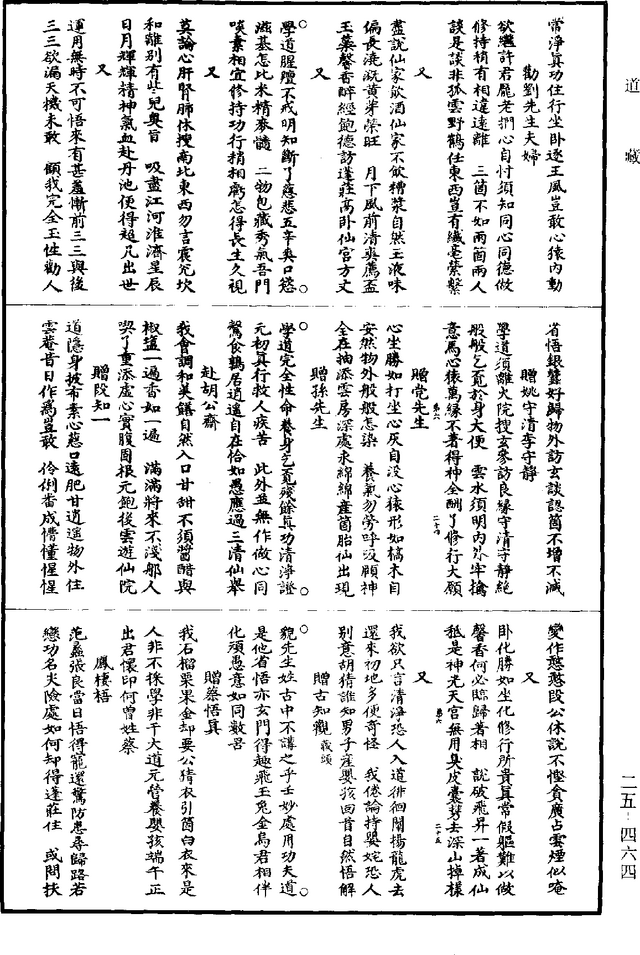 道藏
常淨真功住行坐卧逐王風豈敢心猿内動
勸劉先生夫婦
欲繼許君龐老捫心自忖須知同心同德做
修持稍有相違達離　三箇不如兩箇兩人
談是談非孤雲野鶴任東西豈有纖毫縈繫
又
盡說仙家飲酒仙家不飲糟漿自然玉液味
偏長澆溉黄芽榮旺　月下風前清爽薦盃
玉藥馨香醉經飽德訪蓬莊高卧仙宫方丈
又
學道腥膻不戒明知斷了慈悲五辛爽口慾
滋基怎比米精麥髓　二物包藏秀氣吾門
啖素相宜修持功行稍相虧怎得長生久視
又
莫論心肝腎肺休搜南北東西勿言震兑坎
和離别有些兒奥旨　吸盡江河淮濟星辰
日月輝輝精神氣血赴丹池便得超凡出世
又
運用無時不可悟來有甚羞慚前三三與後
三三欲漏天機未敢　願我完全玉性勸人
省悟銀鹽好歸物外訪玄談認箇不增不減
贈姚守清李守靜
學道須離火院搜玄參訪良緣守清守靜絶
般般乞覓於身大便　雲水須明内外牢擒
意馬心猿萬緣不著得神全酬了修行大願
第六　二十四
贈党先生
心坐勝如打坐心灰自没心猿形如槁木自
安然物外般般怎染　養氣勿勞呼吸頤神
全在抽添雲房深處永綿綿産箇胎仙出現
贈孫先生
學道完全性命養身乞覓殘餘真功清淨證
元初真行救人疾苦　此外並無作做心同
鷇食鶉居逍遥自在恰如愚應過三清仙舉
赴胡公齋
我會調和美饍自然入口甘甜不須醬醋與
椒鹽一遍香如一遍　滿滿將來不淺那人
喫了重添虚心實腹固根元飽後雲遊仙院
贈段知一
道隱身披布素心慈口遠肥甘逍遥物外住
雲菴昔日作爲豈敢　伶俐番成懵懂惺惺
變作憨憨段公休說不慳貪廣占雲煙似唵
又
卧化勝如坐化修行所貴真常假軀難以做
馨香何必臨歸著相　說破飛昇一著成仙
秪是神光天宫無用臭皮囊㔢去深山掉樣
第六　二十五
又
我欲只言清净恐人入道徘徊闡揚龍虎去
還來初地多使奇怪　我倦論持嬰姹恐人
别意胡猜誰知男子産嬰孩回首自然悟解
贈古知觀藏頭
貌先生姓古中不講之乎壬妙處用功夫道
是他省悟亦玄門得趣飛玉兔金烏君相伴
化頑愚意如同數吕
贈蔡悟真
我石榴栗果金却要公猜衣引箇白衣來是
人非不採學非干大道元營養嬰孩端午正
出君懷印何曾姓蔡
鳳棲梧
范蠡張良當日悟得寵還驚防患尋歸路若
戀功名夫險處如何却得蓬莊住　或問扶
二五－四六四